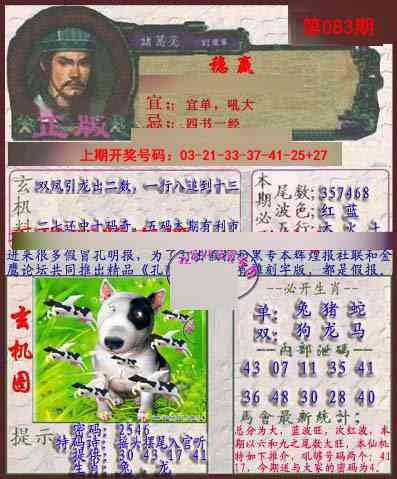 第083期
諸葛亮
稳赢
宜:：宜单，吼大
忌:：四书一经
正版
上期开奖号码：03-21-33-37-41-25+27
玄机
双凤引龙出二数，一行八追到十三
本期必
尾数:357468
波色:红 蓝
进来很多假冒孔明报，为了
黑专本辉煌报社联和金
鹰论坛共同推出精品《孔
雕刻字版，都是假报
玄机图
--必开生肖--
单：兔猪蛇
双：狗龙马
--内部泄码--
43 07 11 35 41
36 48 30 28 40
馬會最新統計：
总分为大，蓝波旺，次红波，本
期以六和九之尾数大旺，本仙机
特如下推介，吼够号码两个：41
17，今期送与大家的密码为4.
提示
密码：2546
特码诗：摇头摆尾入官听
提供：30 43 17 41
生肖：兔，龙